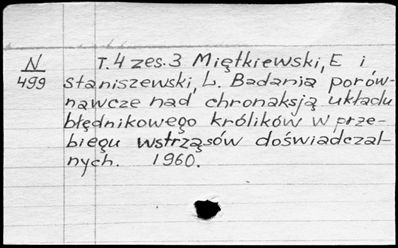 N T. 4 zes. 3 Miętkiewski, E i
499 Staniszewski, L. Badania porów-
nawcze nad chronaksją układu
błędnikowego królików w prze-
biegu wstrząsów doświadczal-
nych. 1960.